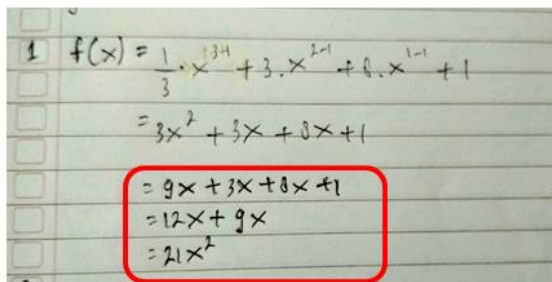 1 f(x) = 1/3 · x³⁻¹ + 3 . x²⁻¹ + 8 . x¹⁻¹ + 1
= 3x² + 3x + 8x + 1
= 9x + 3x + 8x + 1
= 12x + 9x
= 21x²